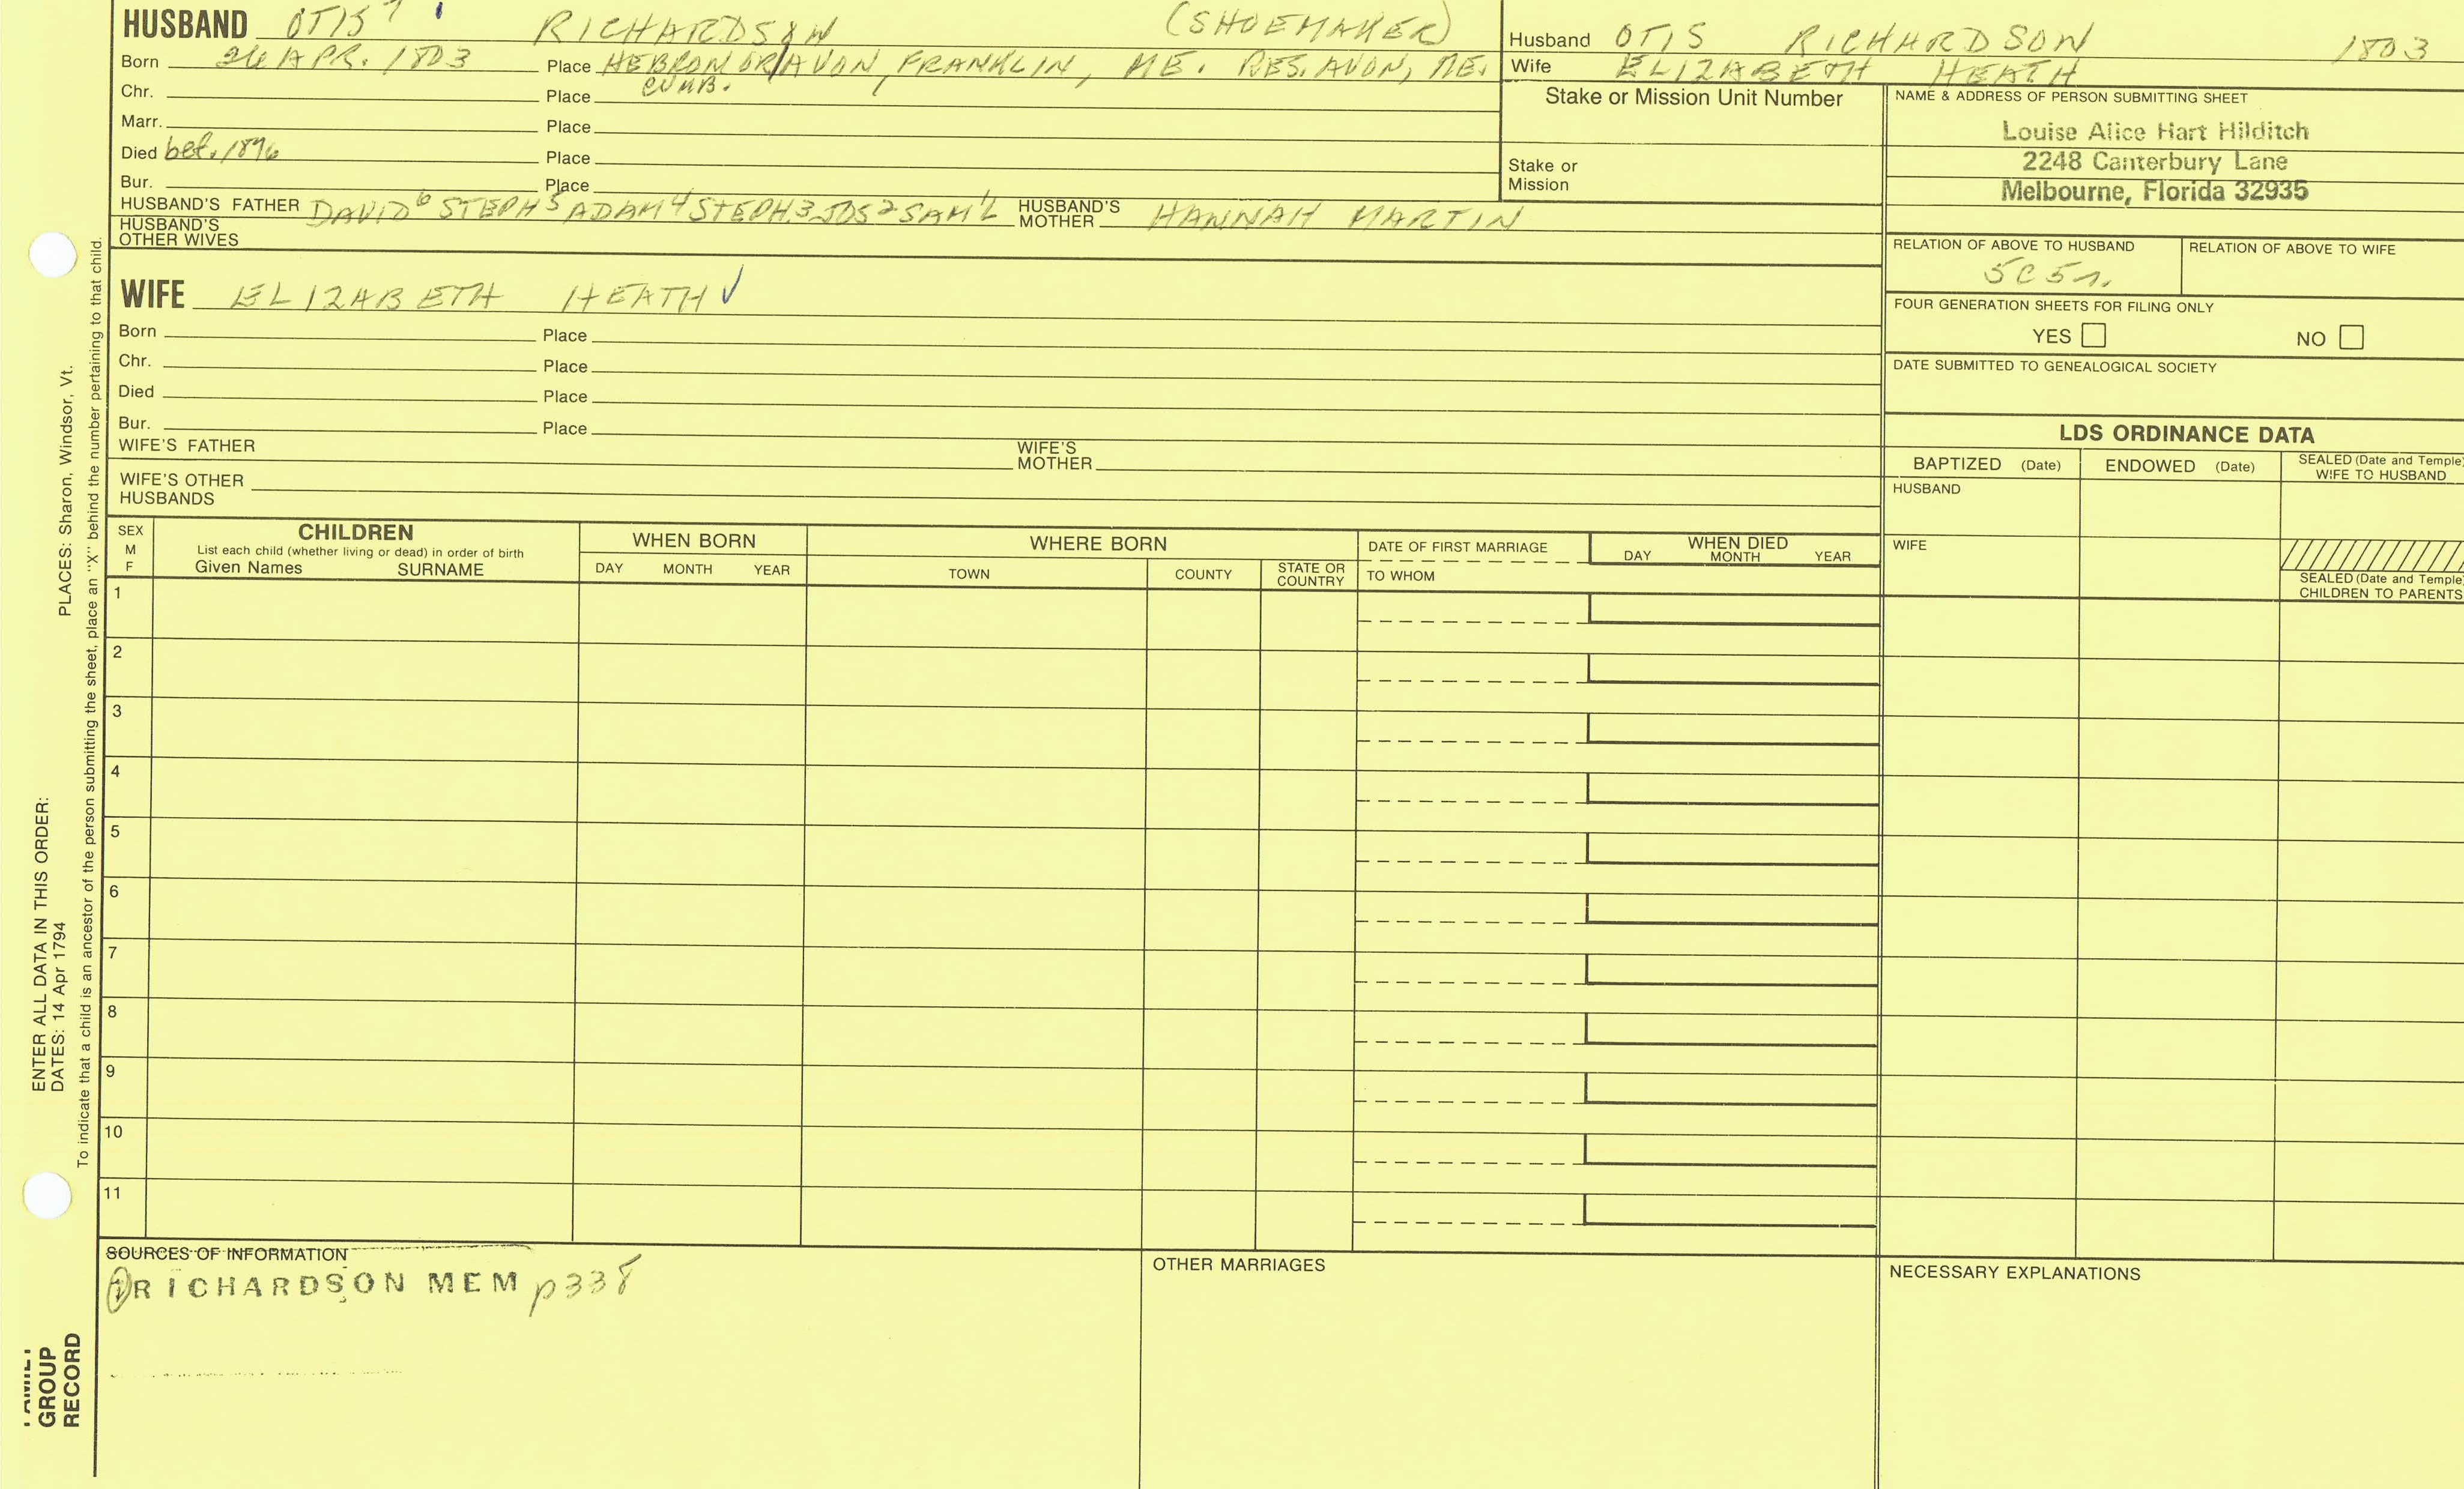 HUSBAND OTIS 7 RICHARDSON (SHOEMAKER)
Born 26 APR. 1803 Place HEBRON OR/AVON, FRANKLIN, ME. RES. AVON, ME.
CUMB.
Chr. Place
Marr. Place
Died bef. 1896 Place
Bur. Place
HUSBAND'S FATHER DAVID 6 STEPH 5 ADAM 4 STEPH. 3 JOS 2 SAM'L 1 HUSBAND'S MOTHER HANNAH MARTIN
HUSBAND'S OTHER WIVES
WIFE ELIZABETH HEATH ✓
Born Place
Chr. Place
Died Place
Bur. Place
WIFE'S FATHER WIFE'S MOTHER
WIFE'S OTHER HUSBANDS
Husband OTIS RICHARDSON 1803
Wife ELIZABETH HEATH
Stake or Mission Unit Number
Stake or Mission
NAME & ADDRESS OF PERSON SUBMITTING SHEET
Louise Alice Hart Hilditch
2248 Canterbury Lane
Melbourne, Florida 32935
RELATION OF ABOVE TO HUSBAND RELATION OF ABOVE TO WIFE
5C5r.
FOUR GENERATION SHEETS FOR FILING ONLY
YES NO
DATE SUBMITTED TO GENEALOGICAL SOCIETY
LDS ORDINANCE DATA
BAPTIZED (Date) ENDOWED (Date) SEALED (Date and Temple) WIFE TO HUSBAND
HUSBAND
WIFE
SEALED (Date and Temple) CHILDREN TO PARENTS
SEX M F
CHILDREN
List each child (whether living or dead) in order of birth
Given Names SURNAME
WHEN BORN
DAY MONTH YEAR
WHERE BORN
TOWN COUNTY STATE OR COUNTRY
DATE OF FIRST MARRIAGE
TO WHOM
WHEN DIED
DAY MONTH YEAR
1
2
3
4
5
6
7
8
9
10
11
SOURCES OF INFORMATION
1 RICHARDSON MEM p338
OTHER MARRIAGES
NECESSARY EXPLANATIONS
ENTER ALL DATA IN THIS ORDER:
DATES: 14 Apr 1794 PLACES: Sharon, Windsor, Vt.
To indicate that a child is an ancestor of the person submitting the sheet, place an "X" behind the number pertaining to that child.
FAMILY
GROUP
RECORD